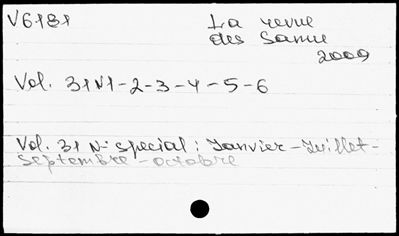 V6181 La revue
des Samu
2009
Vol. 31 N1-2-3-4-5-6
Vol. 31 N° special : Janvier - Juillet -
Septembre - octobre